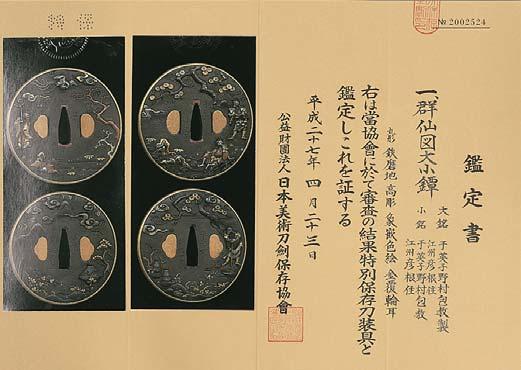 № 2002524
鑑定書
一、群仙図大小鐔
大銘 江州彦根住
干英子野村包教製
小銘 干英子野村包教
江州彦根住
丸形 鉄磨地 高彫 象嵌色絵 金覆輪耳
右は當協會に於て審査の結果特別保存刀装具と
鑑定しこれを証する
平成二十七年 四月二十三日
公益財團法人 日本美術刀劍保存協會